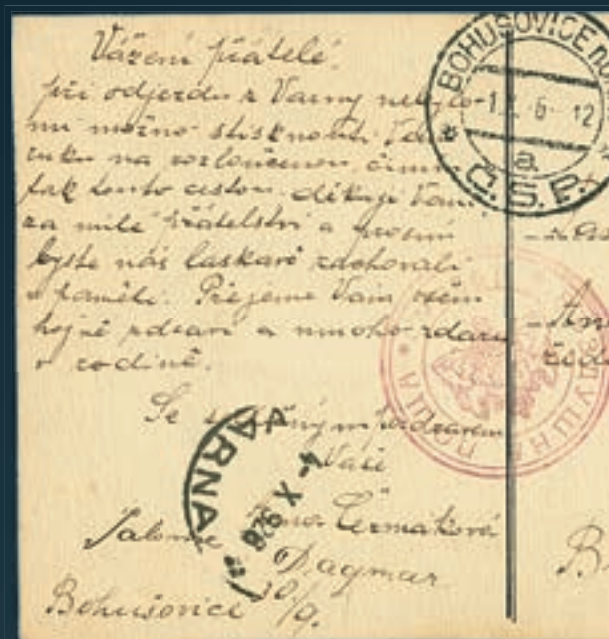 Vážení přátelé!
při odjezdu z Varny nebylo
mi možno stisknouti Vám
ruku na rozloučenou, činím
tak touto cestou, děkuji Vám
za milé přátelství a prosím
byste nás laskavě zachovali
v paměti. Přejeme Vám všem
hojně zdraví a mnoho zdaru
v rodině.
Se srdečným pozdravem
Vaše
Čermáková
Dagmar
Bohušovice 30/9.
BOHUŠOVICE
-1.X.6-12
a
Č.S.P.
VARNA
-4 X 926
ВЪЗДУШНА ПОЩА